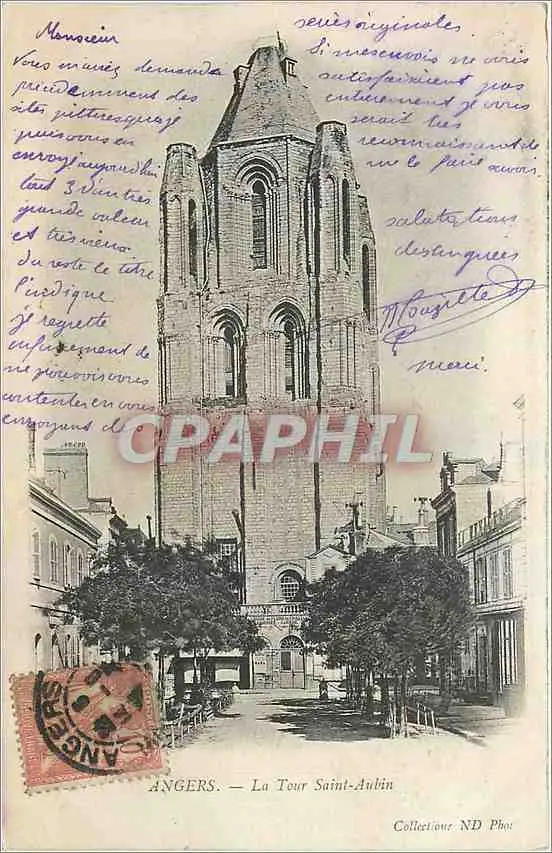 Monsieur
Vous m'ayez demandé
précidemment des
sites pittoresques
puis vous en
envoyé aujourd'hui
tout 3 d'antres
grande valeur
et très vieux
du reste le titre
l'indique
Je regrette
infiniment de
ne pouvoir vous
contenter en vous
envoyant des
séries originales
Si mes envois ne vous
satisfaisaient pas
entièrement je vous
serais très
reconnaissant de
me le faire savoir.
Salutations
distinguées
merci.
CPAPHIL
ANGERS
ANGERS. — La Tour Saint-Aubin
Collections ND Phot